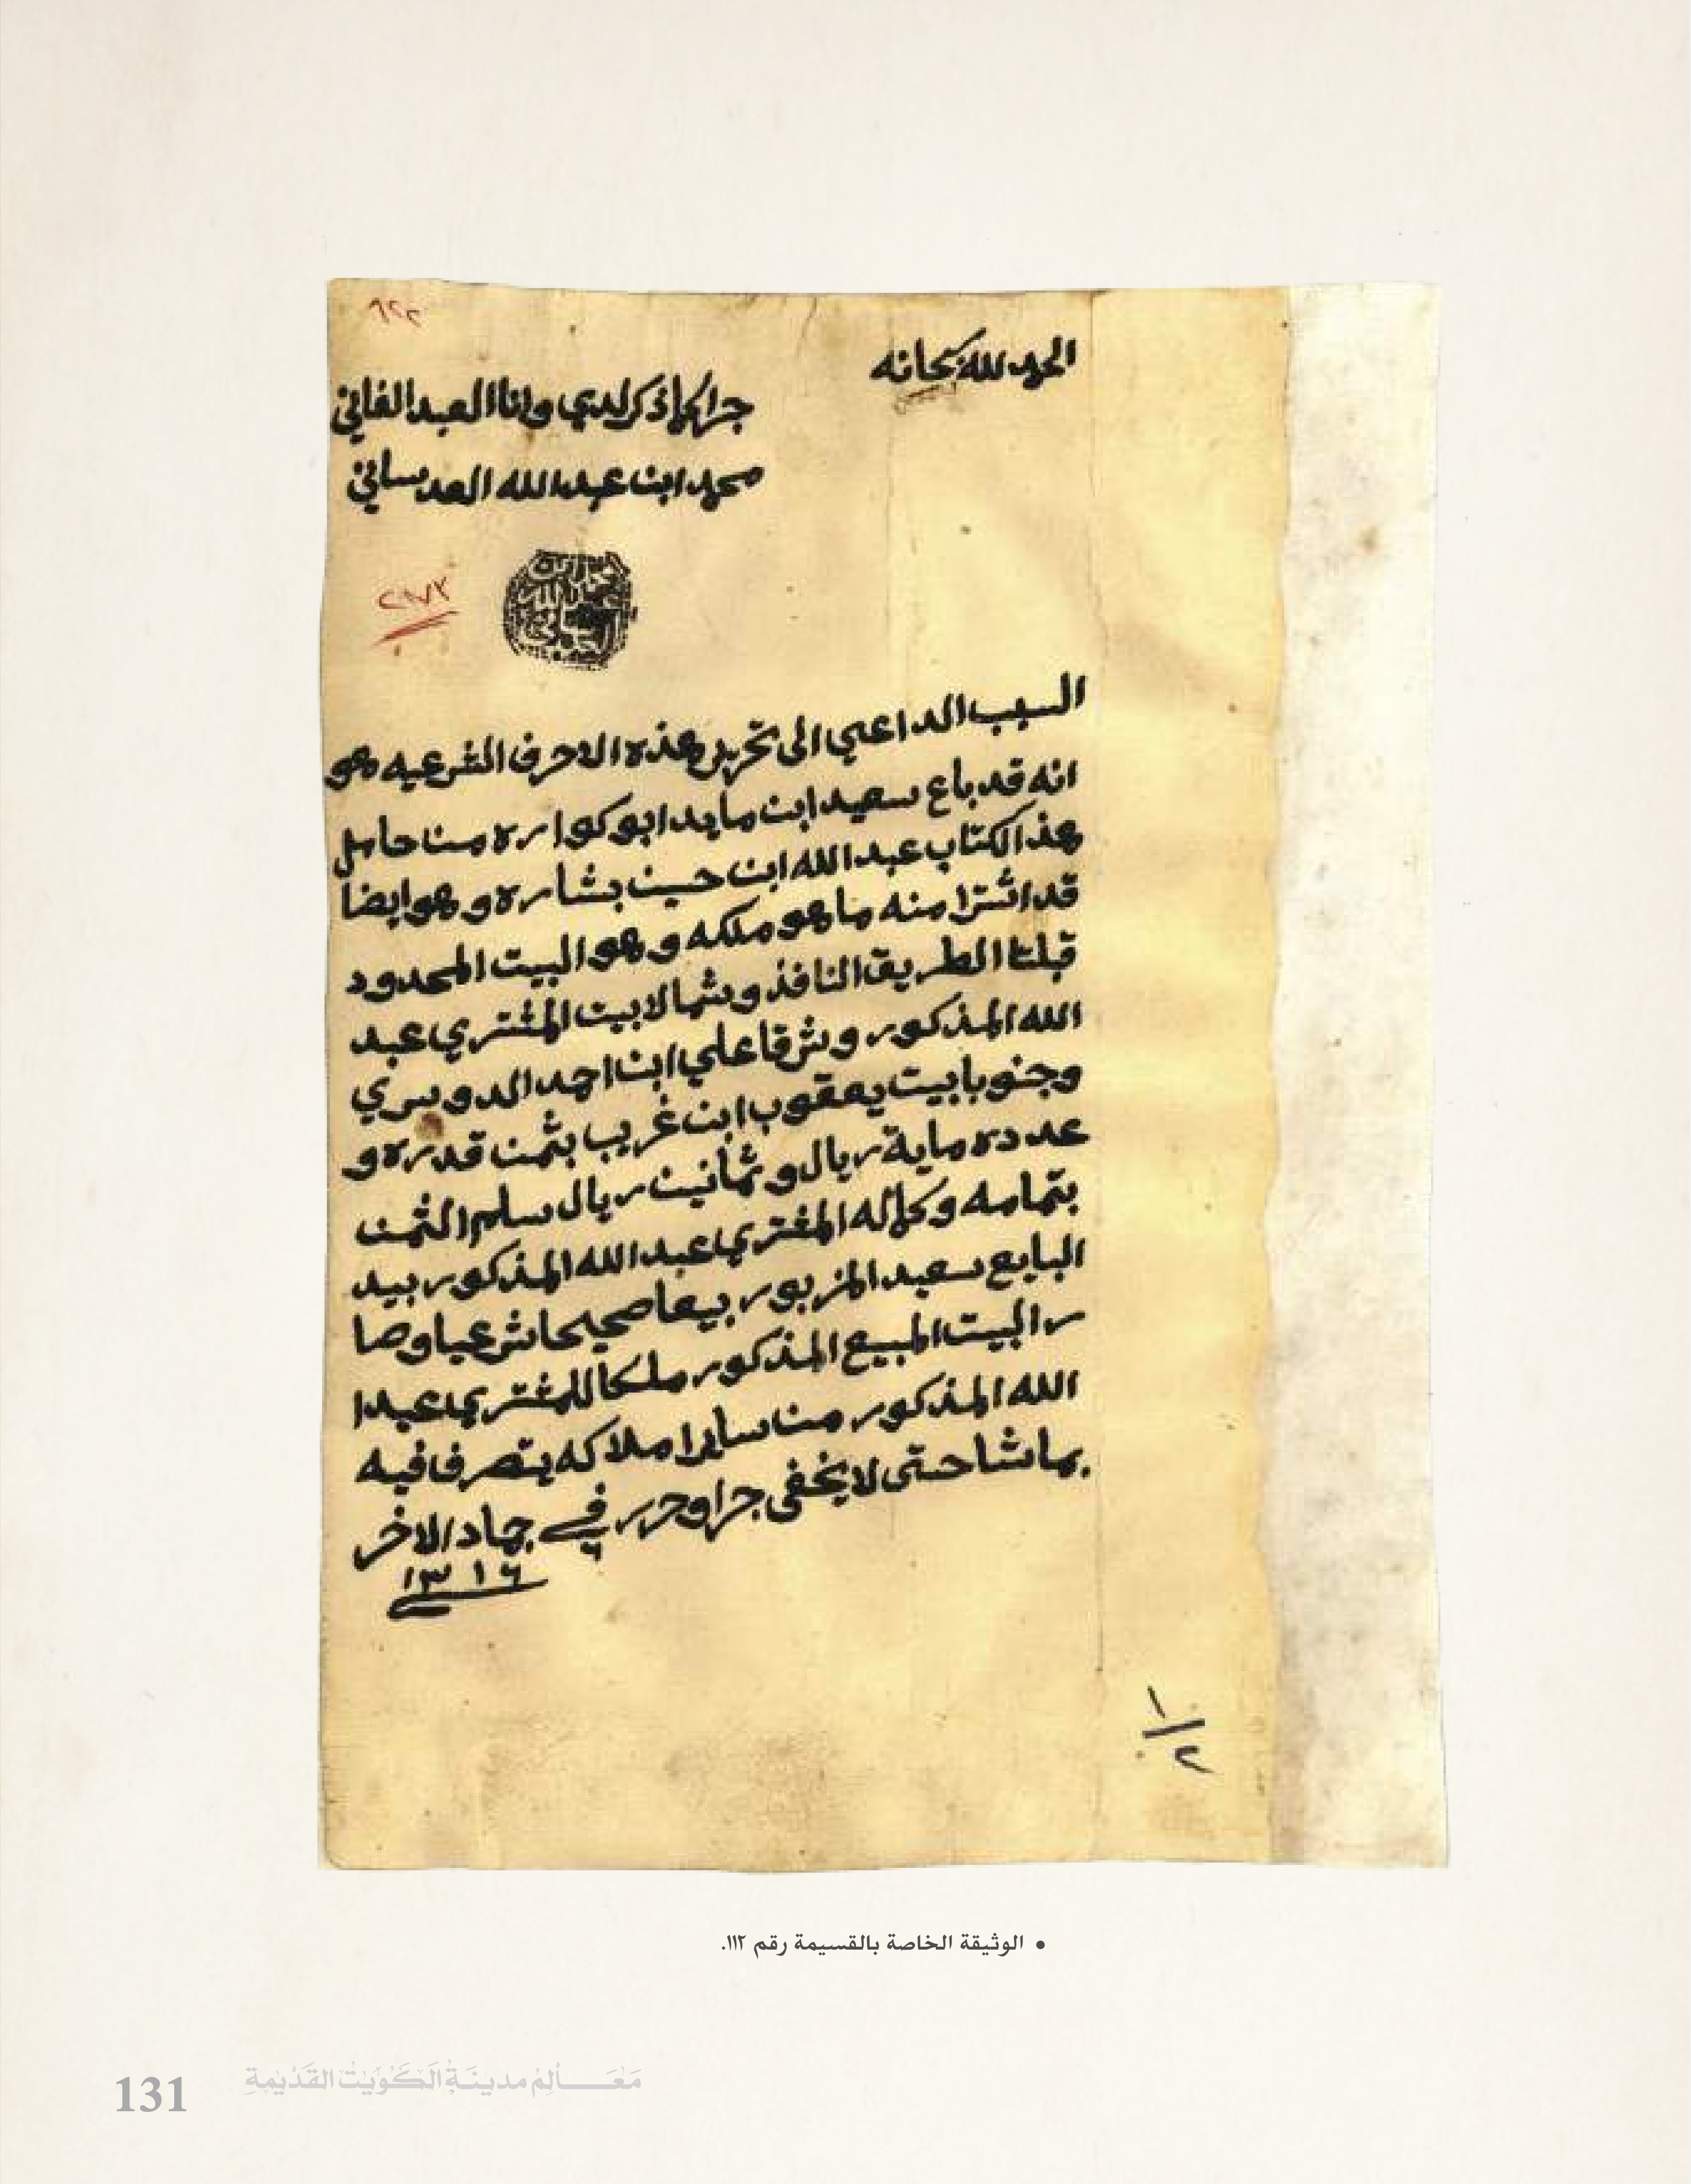 ٩٢٢
الحمد لله سبحانه
جرا كما ذكر لدي وانا العبد الفاني
محمد ابن عبدالله العدساني
السبب الداعي الى تحرير هذه الاحرف الشرعيه هو
انه قد باع سعيد ابن مايد ابو كواره من حامل
هذ الكتاب عبدالله ابن حسين بشاره وهو ايضا
قد اشترا منه ما هو ملكه وهو البيت المحدود
قبلتا الطريق النافذ وشمالا بيت المشتري عبد
الله المذكور وشرقا علي ابن احمد الدوسري
وجنوبا بيت يعقوب ابن غريب بثمن قدره و
عدده ماية ريال وثمانين ريال سلم الثمن
بتمامه وكماله المشتري عبدالله المذكور بيد
البايع سعيد المزبور بيعا صحيحا شرعيا وصا
ر البيت المبيع المذكور ملكا للمشتري عبدا
الله المذكور من ساير املاكه يتصرف فيه
بما شا حتى لا يخفى جرا وحرر في جماد الاخر
١٣١٦
١/٢
• الوثيقة الخاصة بالقسيمة رقم ١١٢.
131 مَعَالِم مدينَةِ الكُوَيْت القَدِيمَةِ